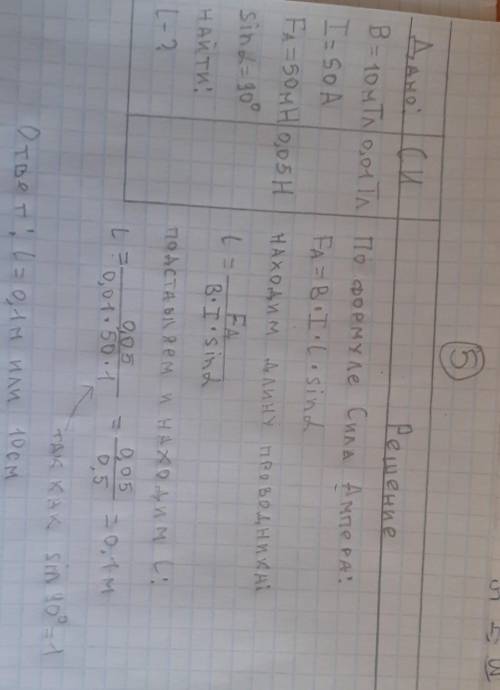 5
Дано:
B = 10мТл
I = 50А
Fд = 50мН
sinα = 90°
найти:
l - ?
СИ
0,01Тл
0,05Н
Решение
По формуле Сила Ампера:
FA = B · I · l · sinα
находим длину проводника:
l = FA / B · I · sinα
подставляем и находим l:
l = 0,05 / 0,01 · 50 · 1 = 0,05 / 0,5 = 0,1м
так как sin90° = 1
Ответ: l = 0,1м или 10см